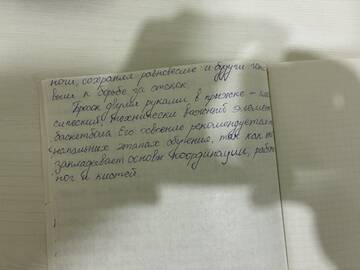 ноги, сохраняя равновесие и будучи гото
вым к борьбе за отскок.
Бросок двумя руками в прыжке – клас
сический технически важный элемент
баскетбола. Его освоение рекомендуется
начальных этапах обучения, так как
закладывает основы координации, рабо
ног и кистей.